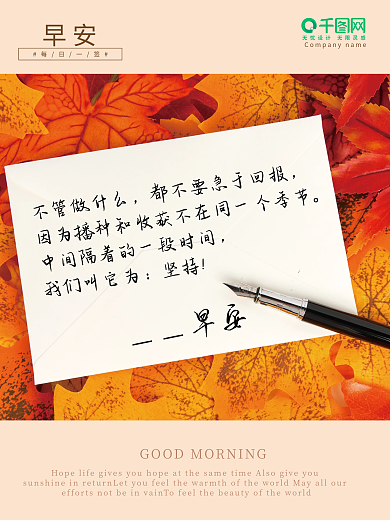 早安
#每/日/一/签#
千图网
无忧设计 无限灵感
Company name
不管做什么，都不要急于回报，
因为播种和收获不在同一个季节。
中间隔着的一段时间，
我们叫它为：坚持！
——早安
GOOD MORNING
Hope life gives you hope at the same time Also give you
sunshine in returnLet you feel the warmth of the world May all our
efforts not be in vainTo feel the beauty of the world